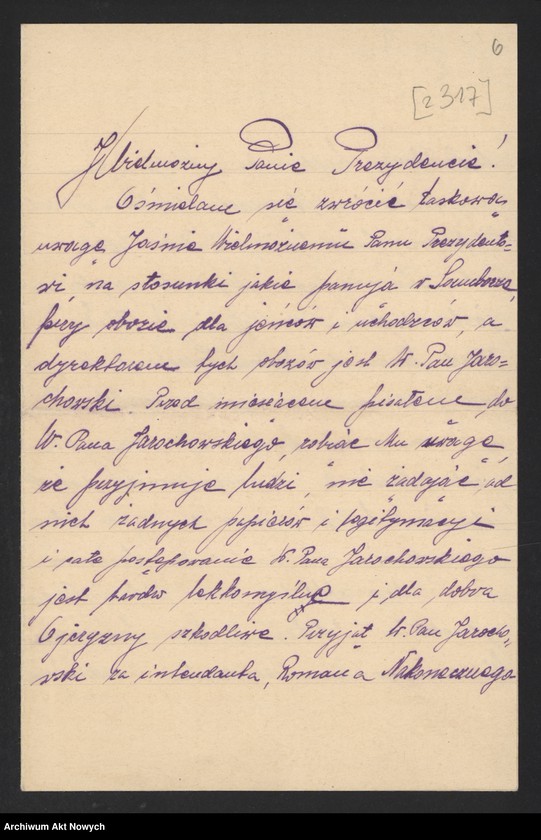 6
[2317]
JWielmożny Panie Prezydencie!
Ośmielam się zwrócić łaskową
uwagę Jaśnie Wielmożnemu Panu Prezydento-
wi na stosunki jakie panują w
przy obozie dla jeńców i uchodźców, a
dyrektorem tych obozów jest W. Pan Jaro-
chowski. Przed miesiącem pisałem do
W. Pana Jarochowskiego, robiąc Mu uwagę,
że przyjmuje ludzi, nie żądając od
nich żadnych papierów i legitymacyi
i całe postępowanie W. Pana Jarochowskiego
jest bardzo lekkomyślne i dla dobra
Ojczyzny szkodliwe. Przyjął W. Pan Jarocho-
wski za intendanta, Romana Nakonecznego
Archiwum Akt Nowych